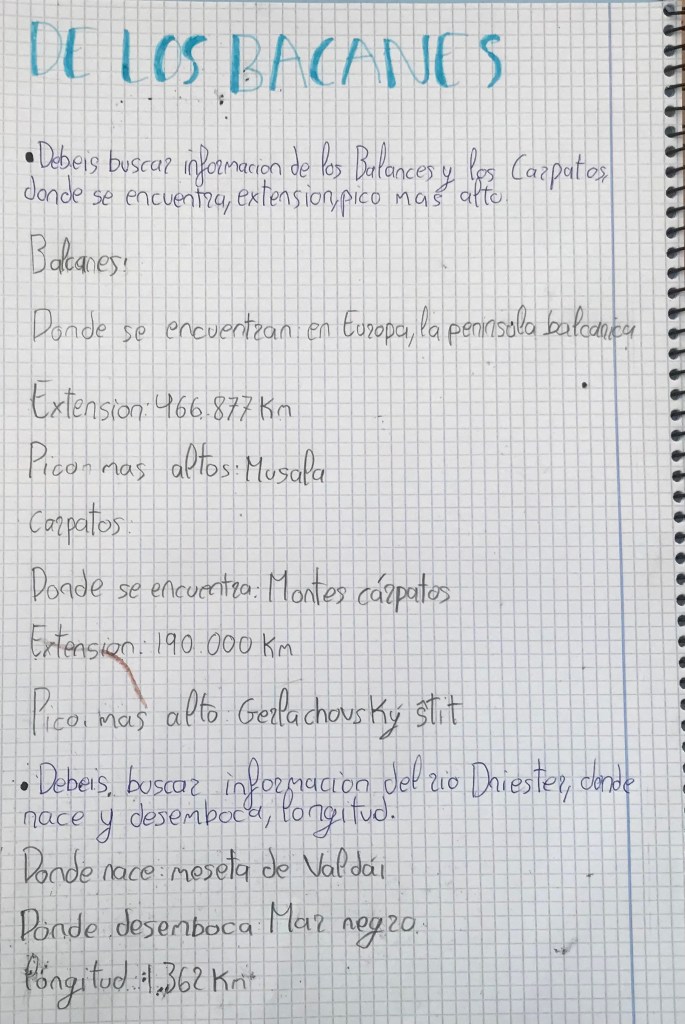 DE LOS BACANES
• Debeis buscar informacion de los Balances y los Carpatos,
donde se encuentra, extension, pico mas alto.
Balcanes:
Donde se encuentran: en Europa, la peninsola balcanica
Extension: 466.877 Km
Pico mas altos: Musala
Carpatos:
Donde se encuentra: Montes cárpatos
Extension: 190.000 Km
Pico mas alto: Gerlachovský štít
• Debeis buscar informacion del rio Dniester, donde
nace y desemboca, longitud.
Donde nace: meseta de Valdái
Donde desemboca: Mar negro.
longitud: 1.362 Km